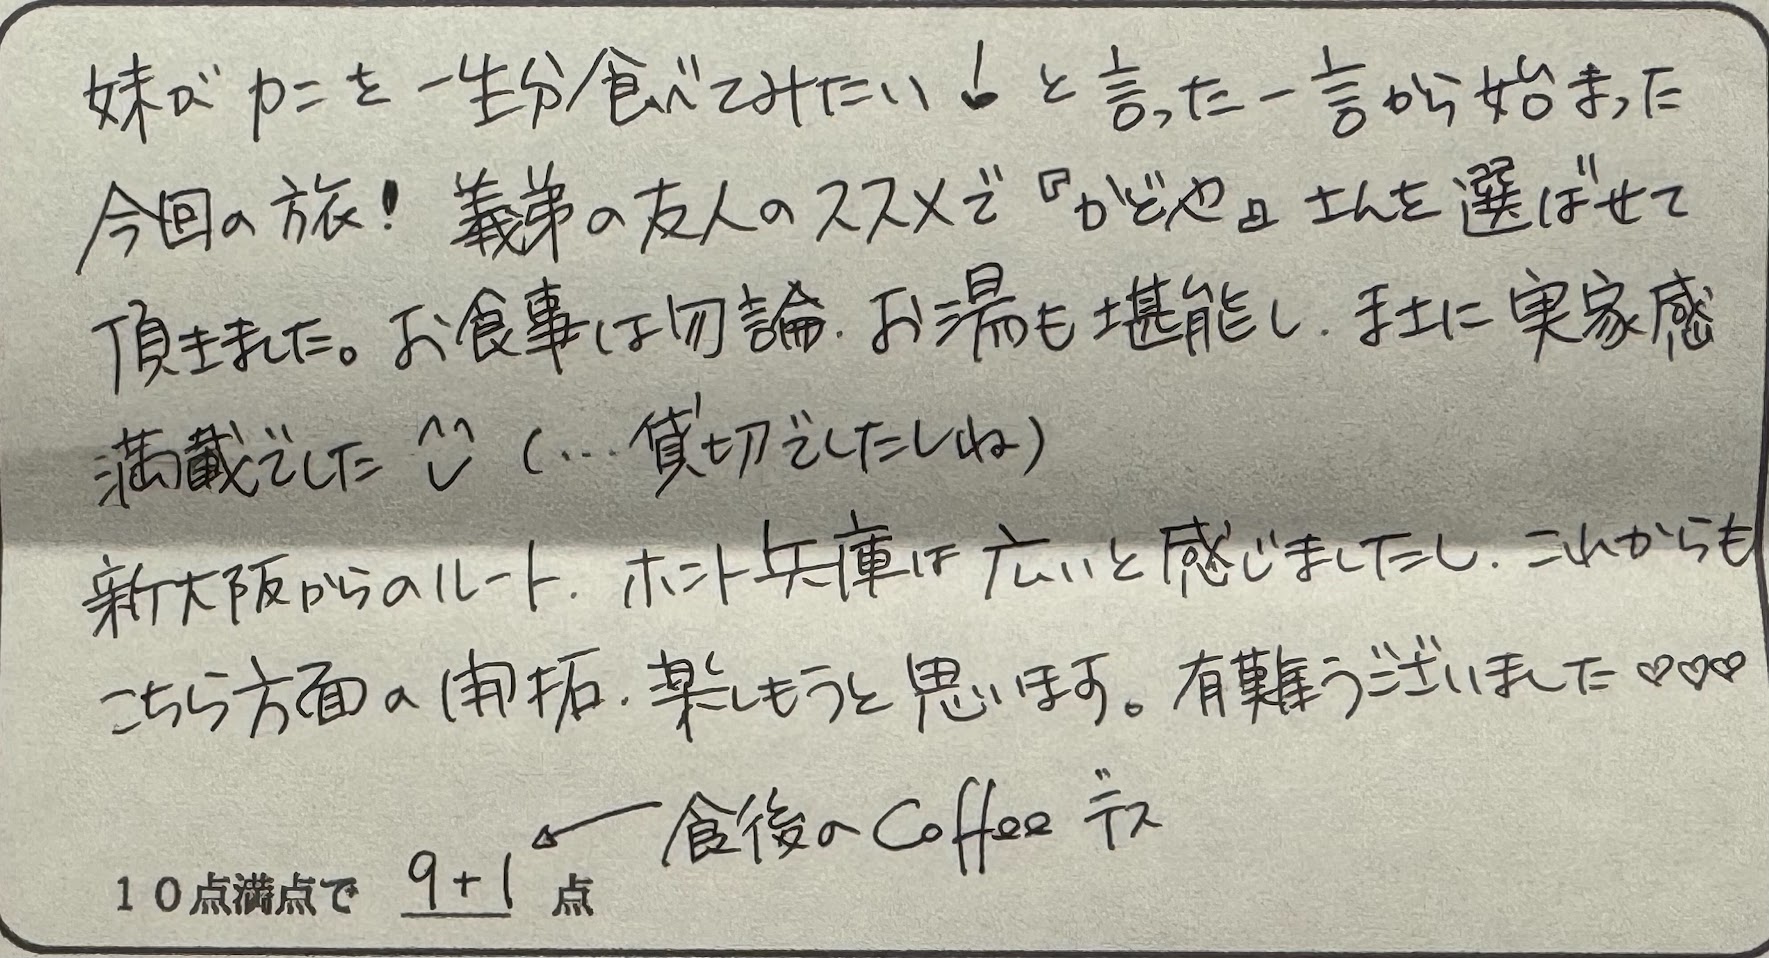 妹がカニを一生分食べてみたい!と言った一言から始まった
今回の旅!義弟の友人のススメで『かどや』さんを選ばせて
頂きました。お食事は勿論、お湯も堪能し、まさに実家感
満載でした ^^ (…貸切でしたしね)
新大阪からのルート、ホント兵庫は広いと感じましたし、これからも
こちら方面の開拓、楽しもうと思います。有難うございました♡♡♡
←食後のCoffeeデス
10点満点で 9+1 点